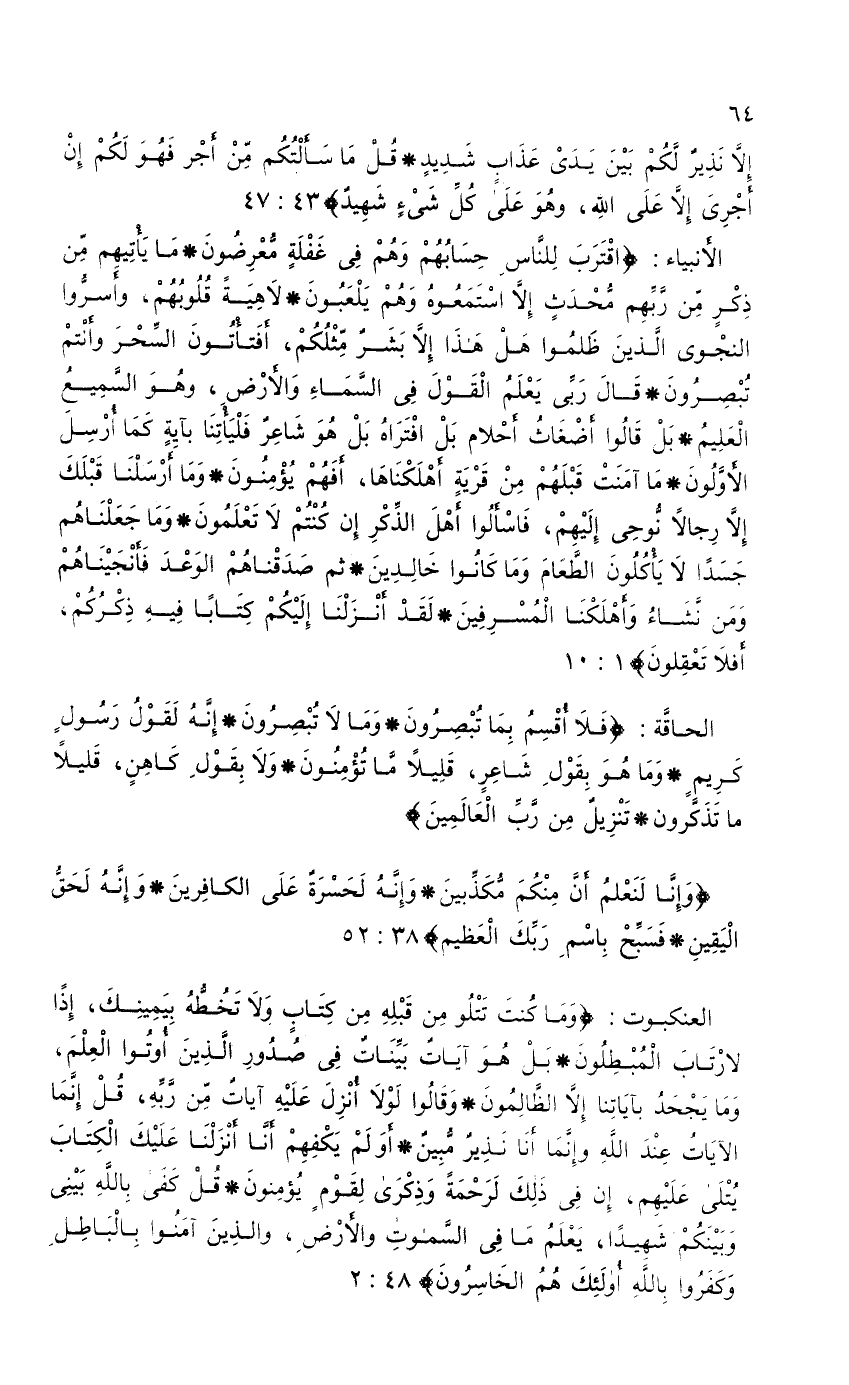 ٦٤
إِلَّا نَذِيرٌ لَّكُمْ بَيْنَ يَدَىْ عَذَابٍ شَدِيدٍ * قُلْ مَا سَأَلْتُكُم مِّنْ أَجْرٍ فَهُوَ لَكُمْ إِنْ
أَجْرِىَ إِلَّا عَلَى اللهِ، وهُوَ عَلَىٰ كُلِّ شَىْءٍ شَهِيدٌ﴾ ٤٣ : ٤٧
الأنبياء : ﴿اقْتَرَبَ لِلنَّاسِ حِسَابُهُمْ وَهُمْ فِى غَفْلَةٍ مُّعْرِضُونَ * مَا يَأْتِيهِم مِّن
ذِكْرٍ مِّن رَّبِّهِم مُّحْدَثٍ إِلَّا اسْتَمَعُوهُ وَهُمْ يَلْعَبُونَ * لَاهِيَةً قُلُوبُهُمْ، وأَسرُّوا
النجْوى الَّذينَ ظَلَمُوا هَلْ هَٰذَا إِلَّا بَشَرٌ مِّثْلُكُمْ، أَفَتَأْتُونَ السِّحْرَ وأَنْتمْ
تُبْصِرُونَ * قَالَ رَبِّى يَعْلَمُ الْقَوْلَ فِى السَّمَاءِ وَالْأَرْضِ، وهُوَ السَّمِيعُ
الْعَلِيمُ * بَلْ قَالُوا أَضْغَاثُ أَحْلامٍ بَلْ افْتَرَاهُ بَلْ هُوَ شَاعِرٌ فَلْيَأْتِنَا بآيَةٍ كَمَا أُرْسِلَ
الأَوَّلُونَ * مَا آمَنَتْ قَبْلَهُمْ مِنْ قَرْيَةٍ أَهْلَكْنَاهَا، أَفَهُمْ يُؤْمِنُونَ * وَمَا أَرْسَلْنَا قَبْلَكَ
إِلَّا رِجالاً نُّوحِى إِلَيْهِمْ، فَاسْأَلُوا أَهْلَ الذِّكْرِ إِن كُنْتُمْ لَا تَعْلَمُونَ * وَمَا جَعَلْنَاهُم
جَسَدًا لَا يَأْكُلُونَ الطَّعَامَ وَمَا كَانُوا خَالِدِينَ * ثم صَدَقْنَاهُمْ الوَعْدَ فَأَنْجَيْنَاهُمْ
وَمَن نَّشَاءُ وَأَهْلَكْنَا الْمُسْرِفِينَ * لَقَدْ أَنْزَلْنَا إِلَيْكُمْ كِتَابًا فِيهِ ذِكْرُكُمْ،
أَفلَا تَعْقِلونَ﴾ ١ : ١٠
الحاقَّة : ﴿فَلَا أُقْسِمُ بِمَا تُبْصِرُونَ * وَمَا لَا تُبْصِرُونَ * إِنَّهُ لَقَوْلُ رَسُولٍ
كَرِيمٍ * وَمَا هُوَ بِقَوْلِ شَاعِرٍ، قَلِيلاً مَّا تُؤْمِنُونَ * وَلَا بِقَوْلِ كَاهِنٍ، قَليلاً
ما تَذَكَّرون * تَنْزِيلٌ مِن رَّبِّ الْعَالَمِينَ﴾
﴿وَإِنَّا لَنَعْلمُ أَنَّ مِنْكُمَ مُّكَذِّبينَ * وَإِنَّهُ لَحَسْرَةٌ عَلَى الكافِرينَ * وَإِنَّهُ لَحَقُّ
الْيَقِينِ * فَسَبِّحْ بِاسْمِ رَبِّكَ الْعَظيم﴾ ٣٨ : ٥٢
العنكبوت : ﴿وَمَا كُنتَ تَتْلُو مِن قَبْلِهِ مِن كِتَابٍ وَلَا تَخُطُّهُ بِيَمِينِكَ، إِذًا
لارْتَابَ الْمُبْطِلُونَ * بَلْ هُوَ آيَاتٌ بَيِّنَاتٌ فِى صُدُورِ الَّذِينَ أُوتُوا الْعِلْمَ،
وَمَا يَجْحَدُ بآيَاتِنا إِلَّا الظَّالِمُونَ * وَقَالُوا لَوْلَا أُنْزِلَ عَلَيْهِ آياتٌ مِّن رَّبِّهِ، قُلْ إِنَّمَا
الآيَاتُ عِنْدَ اللَّهِ وإِنَّمَا أَنَا نَذِيرٌ مُّبِينٌ * أَوَ لَمْ يَكْفِهِمْ أَنَّا أَنْزَلْنَا عَلَيْكَ الْكِتَابَ
يُتْلَىٰ عَلَيْهِم، إِن فِى ذَلِكَ لَرَحْمَةً وَذِكْرَىٰ لِقَوْمٍ يُؤمِنونَ * قُلْ كَفَىٰ بِاللَّهِ بَيْنِى
وَبَيْنَكُمْ شَهِيدًا، يَعْلَمُ مَا فِى السَّمٰوٰتِ والأَرْضِ، والذِينَ آمَنُوا بِالْبَاطِلِ
وَكَفَرُوا بِاللَّهِ أُولَئِكَ هُمُ الخَاسِرُونَ﴾ ٤٨ : ٢